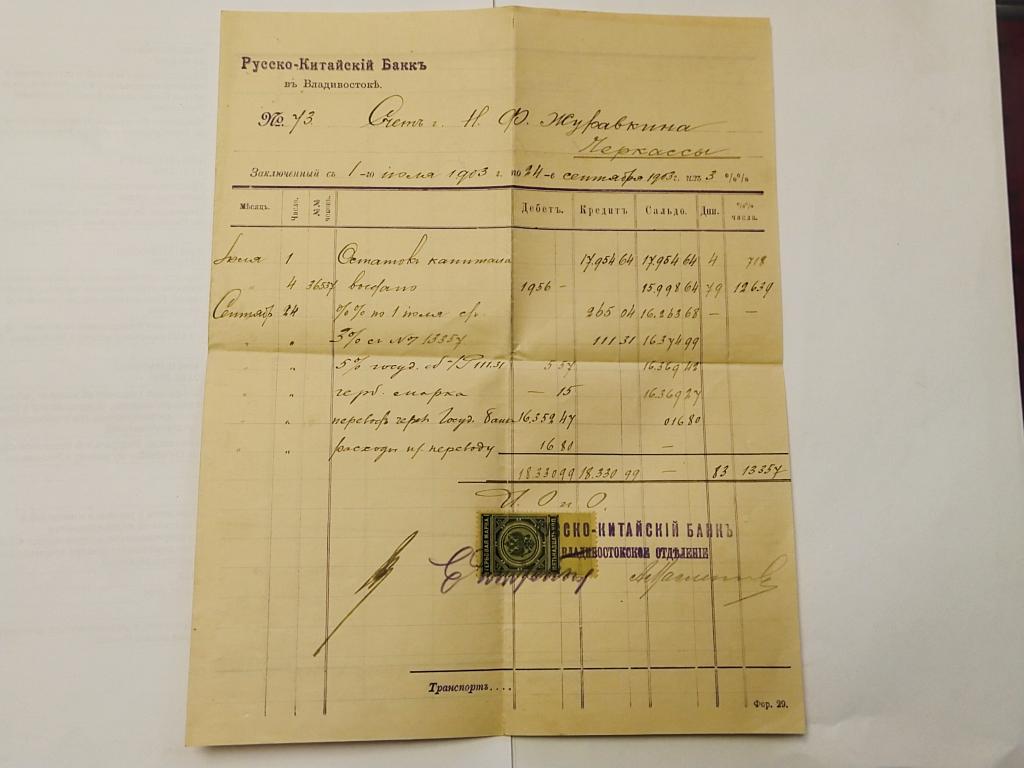 Русско-Китайскій Банкъ
въ Владивостокѣ.
№ 73 Счетъ г. Н. Ф. Журавкина
Черкассы
Заключенный съ 1-го іюля 1903 г. по 24-е сентября 1903 г. изъ 3 %%
Мѣсяцъ. Число. №№ чековъ. Дебетъ. Кредитъ Сальдо. Дни. %% числа.
Іюля 1 Остатокъ капитала 17.954 64 17.954 64 4 718
" 4 36537 выдано 1956 — 15.998 64 79 12639
Сентябр 24 %% по 1 іюля ср. 265 04 16.263 68 — —
" " 3% съ № 13357 111 31 16.374 99
" " 5% госуд. сб. 111.31 5 57 16.369 42
" " герб. марка — 15 16.369 27
" " перевод. чрезъ Госуд. банк 16.352 47 016 80
" " расходы по переводу 16 80 —
18.330 99 18.330 99 — 83 13357
И. О и О.
ГЕРБОВАЯ МАРКА
СКО-КИТАЙСКІЙ БАНКЪ
ВЛАДИВОСТОКСКОЕ ОТДѢЛЕНІЕ
Транспортъ....
Фор. 29.